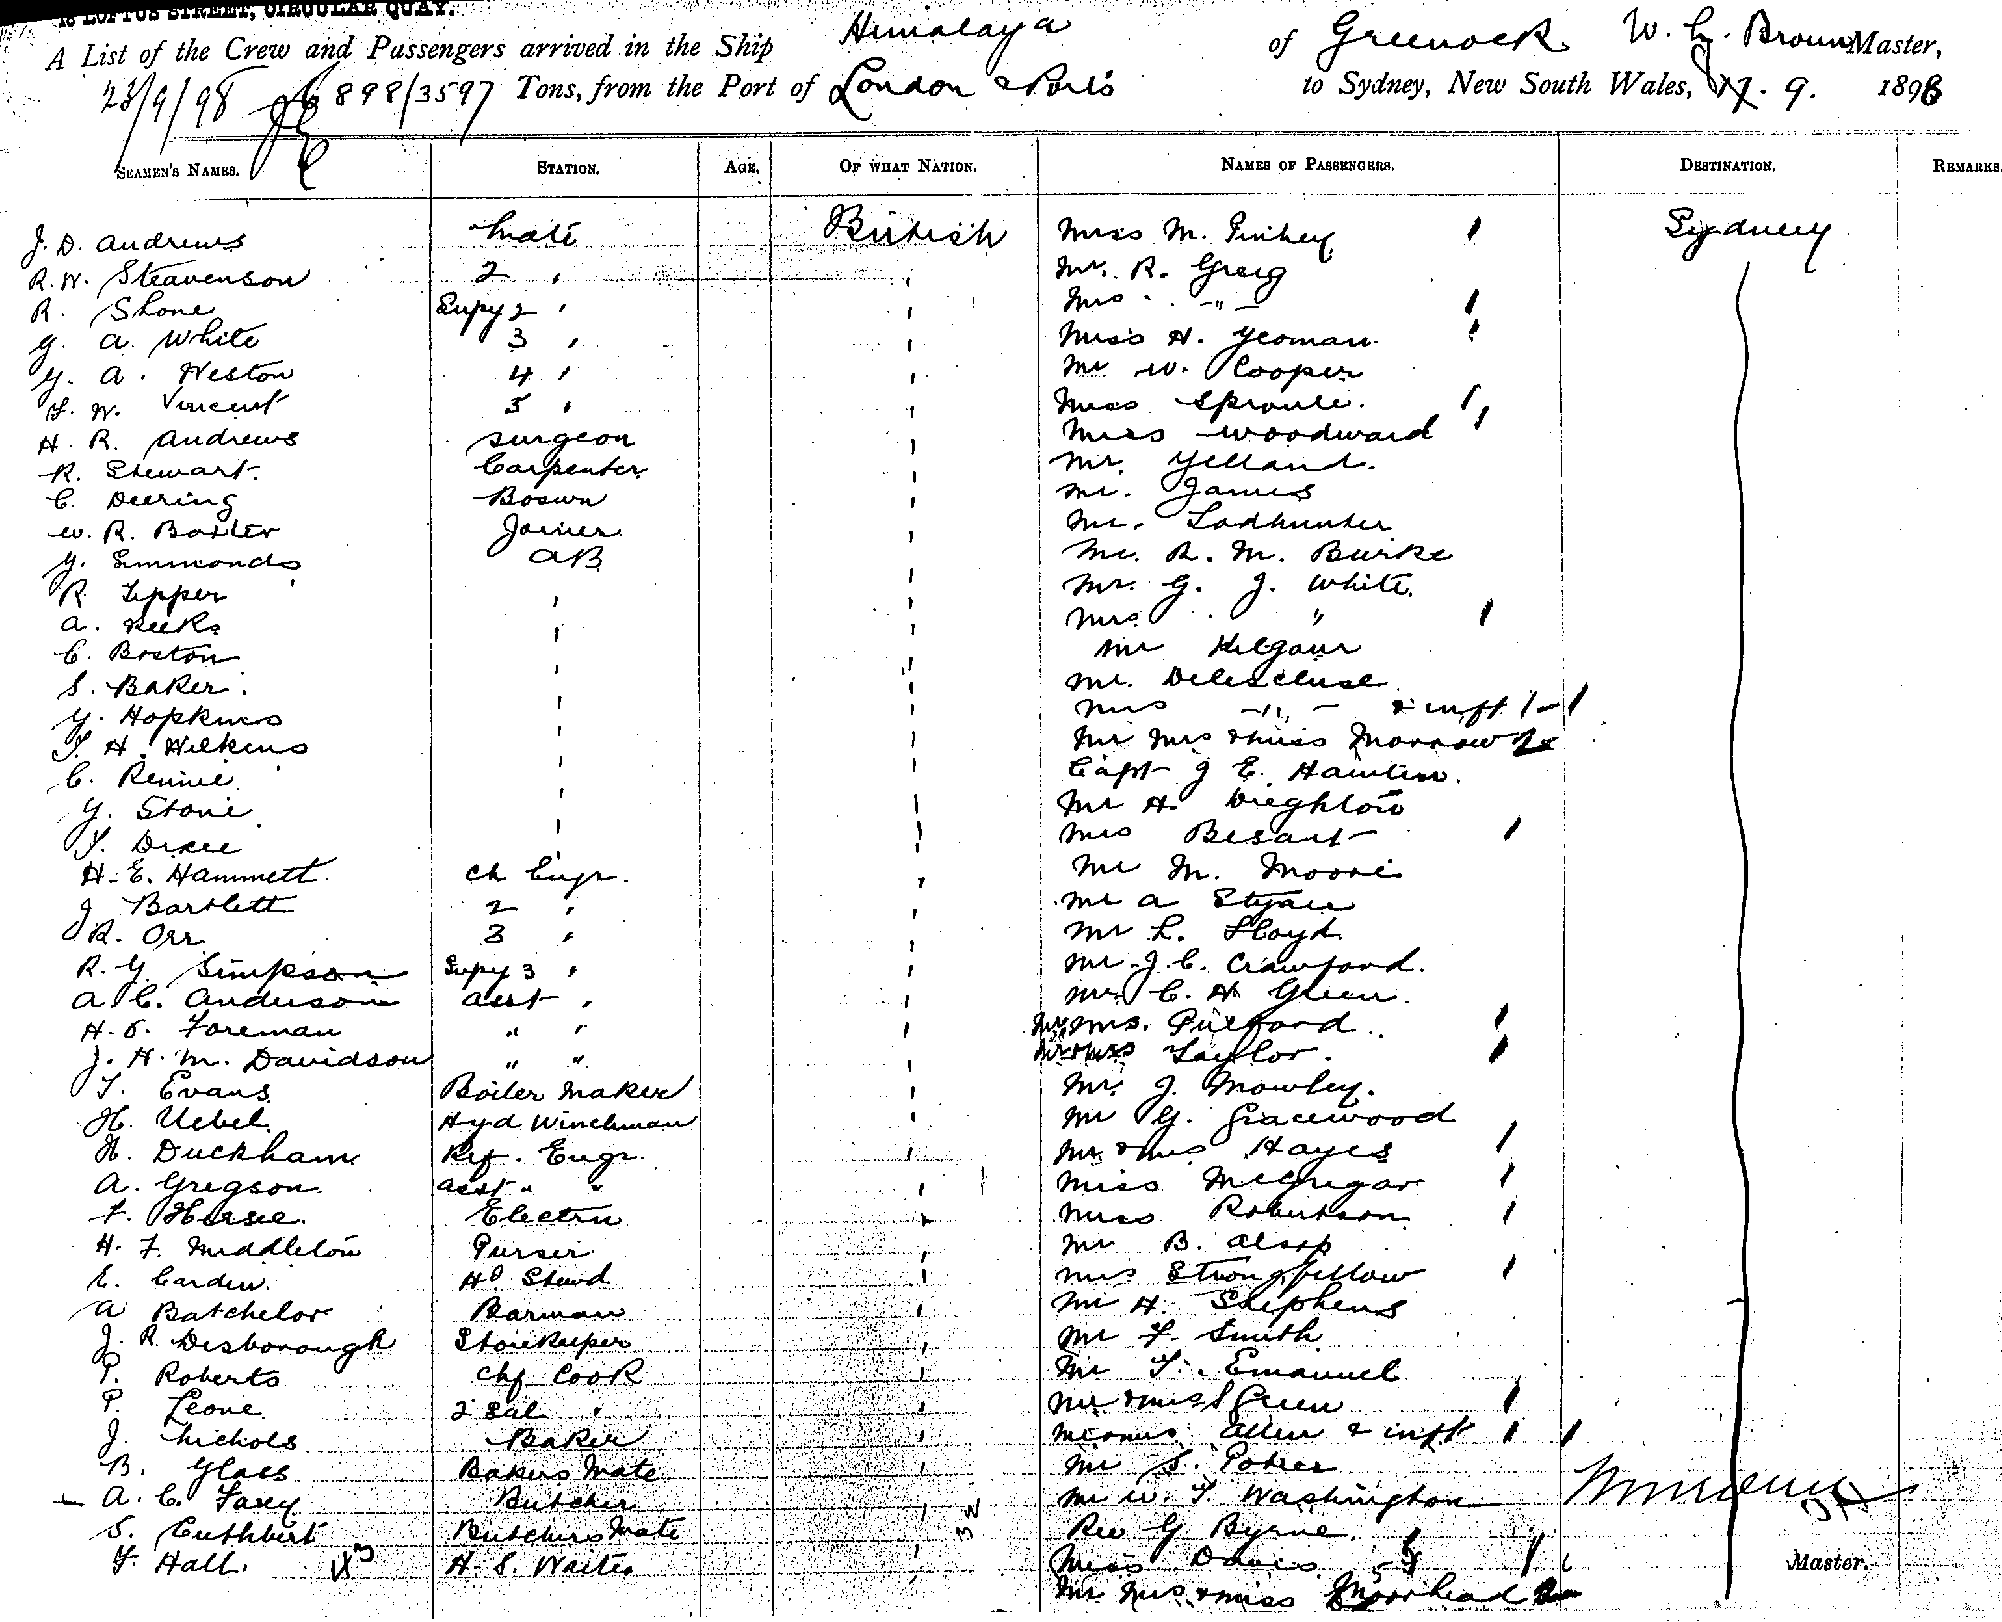 18 LOFTUS STREET, CIRCULAR QUAY.
A List of the Crew and Passengers arrived in the Ship Himalaya of Greenock W. L. Brown Master,
23/9/98 6898/3597 Tons, from the Port of London & Ports to Sydney, New South Wales, 9. 1898
SEAMEN'S NAMES. STATION. AGE. OF WHAT NATION. NAMES OF PASSENGERS. DESTINATION. REMARKS.
J. D. Andrews Mate British Miss M. Pinhey Sydney
R. W. Steavenson 2 " " Mr. R. Greig
R. Shone Supy 2 " " Mrs " "
G. A. White 3 " " Miss H. Yeoman
G. A. Weston 4 " " Mr W. Cooper
F. W. Vincent 5 " " Miss Sproule
H. R. Andrews Surgeon " Miss Woodward
R. Stewart Carpenter " Mr. Yelland
C. Deering Boswn " Mr. James
W. R. Baxter Joiner " Mr. Todhunter
G. Simmonds AB " Mr. R. M. Burke
R. Tipper " " Mr. G. J. White
A. Meeks " " Mrs "
C. Boston " " Mr Kilgour
S. Baker " " Mr. Delescluse
G. Hopkins " " Mrs " & inft 1-1
T. H. Wilkins " " Mr Mrs & Miss Morrow 2
C. Rennie " " Capt J E.
G. Stone " " Mr H. Dieghton
T. " " Mrs Besant
H. E. Hammett Ch Engr. " Mr M. Moore
J Bartlett 2 " " Mr A
R. Orr 3 " " Mr L. Lloyd
R. G Simpson Supy 3 " " Mr J. C. Crawford
A C. Anderson Asst " " Mr C. H Green
H. S. Foreman " " " Mr & Mrs. Pulford
J. H. M. Davidson " " " Mr & Mrs Taylor
T. Evans Boiler Maker " Mr. J. Mowley
H. Uebel Hyd Winchman " Mr G. Gracewood
H. Duckham Ref. Engr. " Mr & Mrs Hayes
A. Gregson Asst " " " Miss McGregor
F. Hersee Electrn " Miss Robertson
H. F. Middleton Purser " Mr B. Alsop
E. Carden Hd Stewd " Mrs Strongfellow
A Batchelor Barman " Mr H. Stephens
J. R Desborough Storekeeper " Mr F. Smith
P. Roberts Chf Cook " Mr T. Emanuel
P. Leone 2 Sal " " Mr & Miss Green
J. Nichols Baker " Mr & Mrs Allen & inft
B. Glass Bakers Mate " Mr S.
A. C. Farey Butcher " Mr W. T. Washington
S. Cuthbert Butchers Mate " Rev G Byrne
F. Hall H. S. Waiter " Miss Davis Master.
Mr Mrs & Miss Moorhead